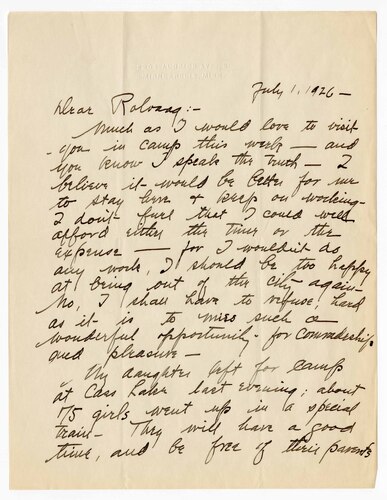 July 1, 1926 —
Dear Rolvaag :-
Much as I would love to visit
you in camp this week — and
you know I speak the truth — I
believe it would be better for me
to stay here & keep on working -
I don't feel that I could well
afford either the time or the
expense — for I wouldn't do
any work, I should be too happy
at being out of the city again -
No, I shall have to refuse, hard
as it is to miss such a
wonderful opportunity for comradeship
and pleasure —
My daughter left for camp
at Cass Lake last evening; about
175 girls went up in a special
train - They will have a good
time, and be free of their parents